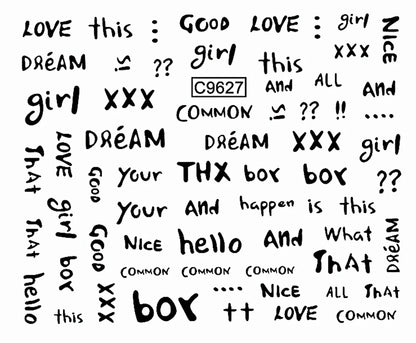 LOVE this : GOOD LOVE : girl NICE
DRéAM is ?? girl this XXX
C9627 And ALL And
girl XXX COMMON is ?? !! ....
LOVE DRéAM DRéAM XXX girl
ThAt GOOD your THX boy boy ??
girl your AND happen is this
ThAt GOOD NICE hello And What DRéAM
boy COMMON COMMON COMMON ThAt
hello XXX .... NICE ALL ThAt
this boy tt LOVE COMMON